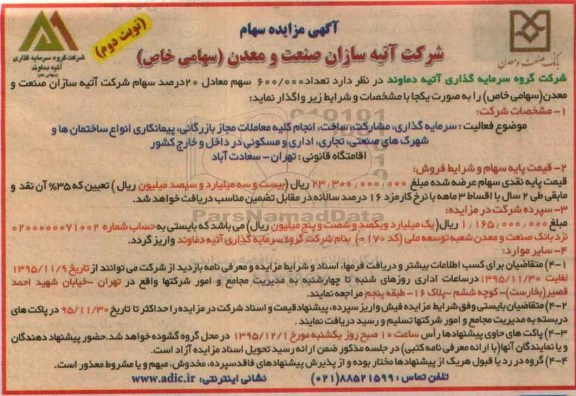 آگهی مزایده سهام
(نوبت دوم)
شرکت آتیه سازان صنعت و معدن (سهامی خاص)
بانک صنعت و معدن
شرکت گروه سرمایه گذاری
آتیه دماوند
(سهامی عام)
شرکت گروه سرمایه گذاری آتیه دماوند در نظر دارد تعداد ۶۰۰/۰۰۰ سهم معادل ۲۰درصد سهام شرکت آتیه سازان صنعت و
معدن(سهامی خاص) را به صورت یکجا با مشخصات و شرایط زیر واگذار نماید:
۱-مشخصات شرکت:
موضوع فعالیت: سرمایه گذاری، مشارکت، ساخت، انجام کلیه معاملات مجاز بازرگانی، پیمانکاری انواع ساختمان ها و
شهرک های صنعتی، تجاری، اداری و مسکونی در داخل و خارج کشور
اقامتگاه قانونی: تهران - سعادت آباد
۲-قیمت پایه سهام و شرایط فروش:
قیمت پایه نقدی سهام عرضه شده مبلغ ۲۳,۳۰۰,۰۰۰,۰۰۰ ریال (بیست و سه میلیارد و سیصد میلیون ریال) تعیین که ۳۵% آن نقد و
مابقی طی ۲ سال با اقساط ۳ ماهه با نرخ کارمزد ۱۶ درصد سالانه در مقابل تضمین مناسب دریافت خواهد شد.
۳-سپرده شرکت در مزایده:
مبلغ ۱,۱۶۵,۰۰۰,۰۰۰ ریال(یک میلیارد و یکصد و شصت و پنج میلیون ریال) می باشد که بایستی به حساب شماره ۰۲۰۰۰۰۰۰۷۱۰۰۲
نزد بانک صنعت و معدن شعبه توسعه ملی (کد ۰۷۰) بنام شرکت گروه سرمایه گذاری آتیه دماوند واریز گردد.
۴-سایر موارد:
۴-۱) متقاضیان برای کسب اطلاعات بیشتر و دریافت فرمها، اسناد و شرایط مزایده و معرفی نامه بازدید از شرکت می توانند از تاریخ ۱۳۹۵/۱۱/۹
لغایت ۱۳۹۵/۱۱/۳۰ درساعات اداری روزهای شنبه تا چهارشنبه به مدیریت مجامع و امور شرکتها واقع در تهران -خیابان شهید احمد
قصیر(بخارست)- کوچه ششم -پلاک ۱۶- طبقه پنجم مراجعه نمایند.
۴-۲) متقاضیان بایستی وفق شرایط مزایده فیش واریز سپرده، پیشنهاد قیمت و اسناد شرکت در مزایده را حداکثر تا تاریخ ۹۵/۱۱/۳۰ در پاکت های
دربسته به مدیریت مجامع و امور شرکتها تسلیم و رسید دریافت نمایند.
۴-۳) پاکت های حاوی پیشنهادها رأس ساعت ۱۰ صبح روز یکشنبه مورخ ۱۳۹۵/۱۲/۱ در محل گروه گشوده خواهد شد.حضور پیشنهاد دهندگان
و یا نمایندگان آنها(با ارائه معرفی نامه کتبی) در جلسه مذکور ضمن ارائه رسید تحویل اسناد مزایده آزاد است.
۴-۴) گروه در رد یا قبول هریک از پیشنهادها مختار بوده و از پذیرش پیشنهادهای فاقد سپرده، مخدوش، مبهم و یا مشروط معذور است.
تلفن تماس: ۸۸۵۲۱۵۹۹(۰۲۱)
نشانی اینترنتی: www.adic.ir
ParsNamadData